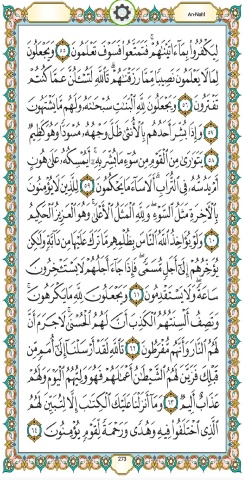 An-Nahl
لِيَكْفُرُوا۟ بِمَآ ءَاتَيْنَٰهُمْ ۚ فَتَمَتَّعُوا۟ ۖ فَسَوْفَ تَعْلَمُونَ ٥٥ وَيَجْعَلُونَ
لِمَا لَا يَعْلَمُونَ نَصِيبًا مِّمَّا رَزَقْنَٰهُمْ ۗ تَٱللَّهِ لَتُسْـَٔلُنَّ عَمَّا كُنتُمْ
تَفْتَرُونَ ٥٦ وَيَجْعَلُونَ لِلَّهِ ٱلْبَنَٰتِ سُبْحَٰنَهُۥ ۙ وَلَهُم مَّا يَشْتَهُونَ
٥٧ وَإِذَا بُشِّرَ أَحَدُهُم بِٱلْأُنثَىٰ ظَلَّ وَجْهُهُۥ مُسْوَدًّا وَهُوَ كَظِيمٌ
٥٨ يَتَوَٰرَىٰ مِنَ ٱلْقَوْمِ مِن سُوٓءِ مَا بُشِّرَ بِهِۦٓ ۚ أَيُمْسِكُهُۥ عَلَىٰ هُونٍ
أَمْ يَدُسُّهُۥ فِى ٱلتُّرَابِ ۗ أَلَا سَآءَ مَا يَحْكُمُونَ ٥٩ لِلَّذِينَ لَا يُؤْمِنُونَ
بِٱلْـَٔاخِرَةِ مَثَلُ ٱلسَّوْءِ ۖ وَلِلَّهِ ٱلْمَثَلُ ٱلْأَعْلَىٰ ۚ وَهُوَ ٱلْعَزِيزُ ٱلْحَكِيمُ
٦٠ وَلَوْ يُؤَاخِذُ ٱللَّهُ ٱلنَّاسَ بِظُلْمِهِم مَّا تَرَكَ عَلَيْهَا مِن دَآبَّةٍ وَلَٰكِن
يُؤَخِّرُهُمْ إِلَىٰٓ أَجَلٍ مُّسَمًّى ۖ فَإِذَا جَآءَ أَجَلُهُمْ لَا يَسْتَـْٔخِرُونَ
سَاعَةً ۖ وَلَا يَسْتَقْدِمُونَ ٦١ وَيَجْعَلُونَ لِلَّهِ مَا يَكْرَهُونَ
وَتَصِفُ أَلْسِنَتُهُمُ ٱلْكَذِبَ أَنَّ لَهُمُ ٱلْحُسْنَىٰ ۖ لَا جَرَمَ أَنَّ
لَهُمُ ٱلنَّارَ وَأَنَّهُم مُّفْرَطُونَ ٦٢ تَٱللَّهِ لَقَدْ أَرْسَلْنَآ إِلَىٰٓ أُمَمٍ مِّن
قَبْلِكَ فَزَيَّنَ لَهُمُ ٱلشَّيْطَٰنُ أَعْمَٰلَهُمْ فَهُوَ وَلِيُّهُمُ ٱلْيَوْمَ وَلَهُمْ
عَذَابٌ أَلِيمٌ ٦٣ وَمَآ أَنزَلْنَا عَلَيْكَ ٱلْكِتَٰبَ إِلَّا لِتُبَيِّنَ لَهُمُ
ٱلَّذِى ٱخْتَلَفُوا۟ فِيهِ ۙ وَهُدًى وَرَحْمَةً لِّقَوْمٍ يُؤْمِنُونَ ٦٤
273